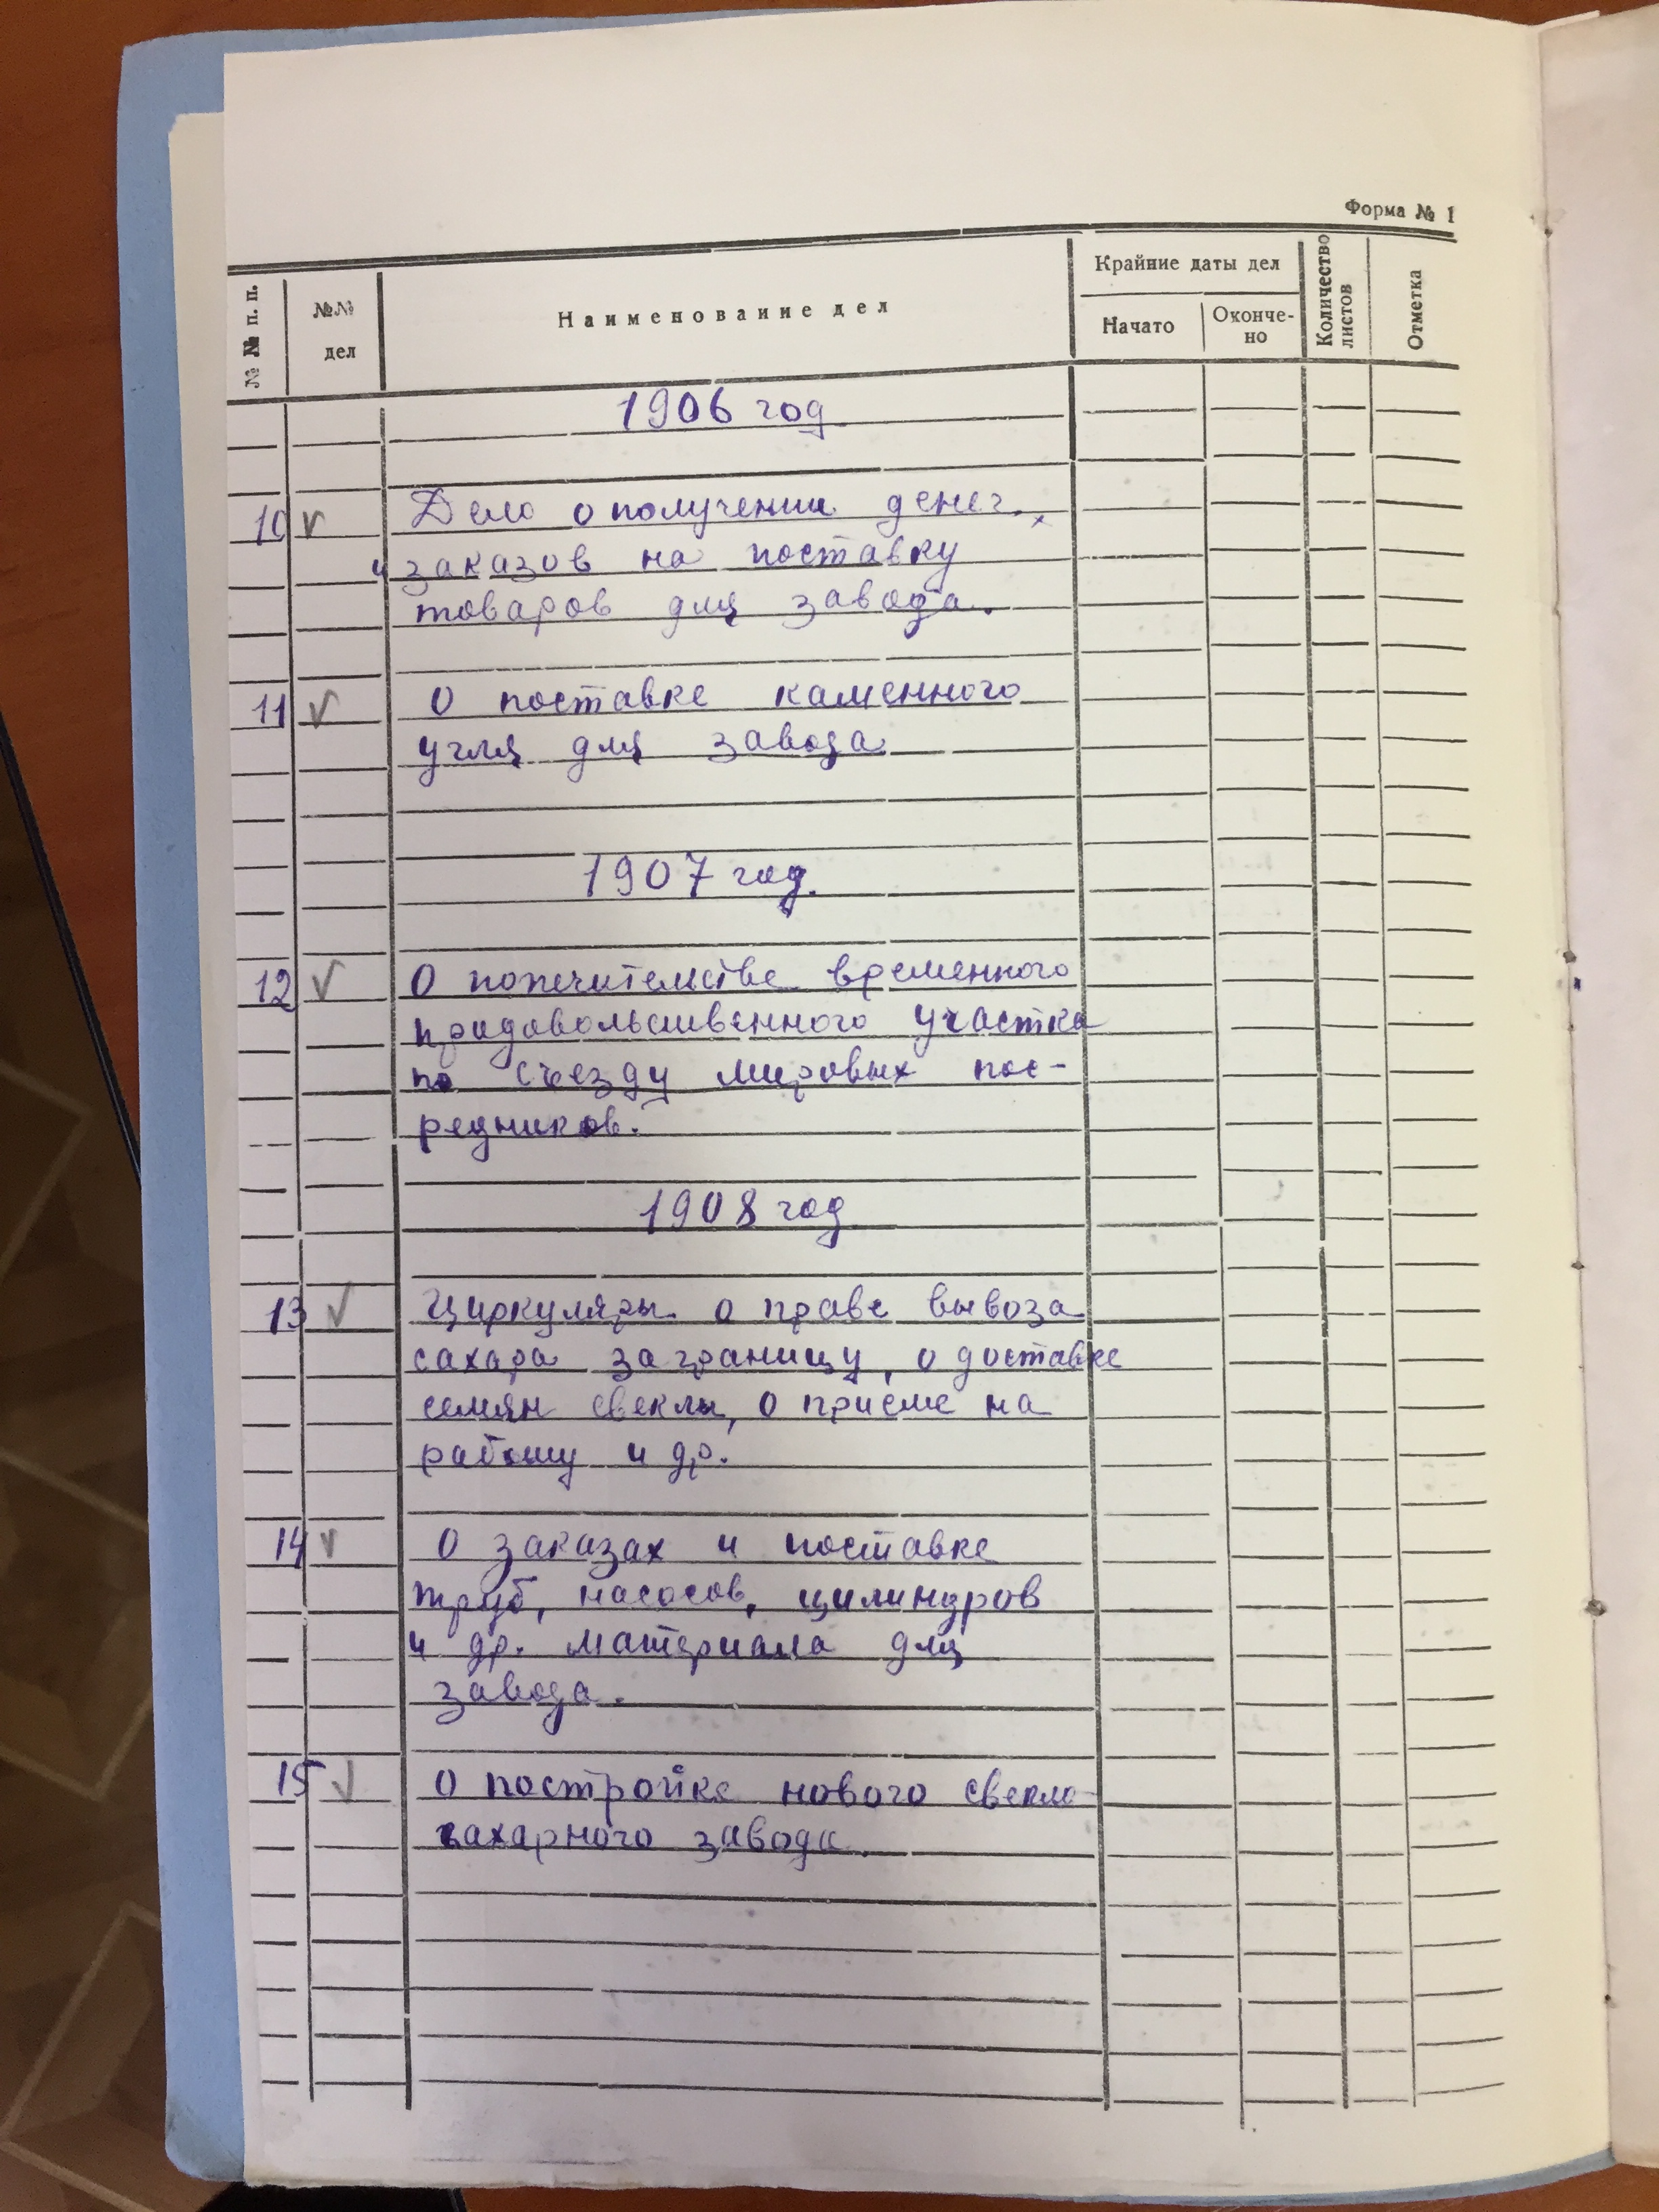 Форма № 1
№ № п. п.
№№ дел
Наименование дел
Крайние даты дел
Начато
Окончено
Количество листов
Отметка
1906 год
10 Дело о получении денег
и заказов на поставку
товаров для завода.
11 О поставке каменного
угля для завода
1907 год.
12 О попечительстве временного
продовольственного участка
по съезду мировых пос-
редников.
1908 год
13 Циркуляры о праве вывоза
сахара заграницу, о доставке
семян свеклы, о приеме на
работу и др.
14 О заказах и поставке
труб, насосов, цилиндров
и др. материала для
завода.
15 О постройке нового свекло-
сахарного завода.